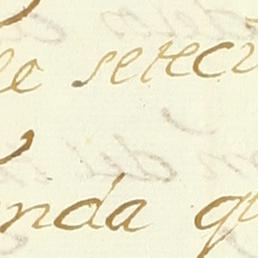 e setec
nda q